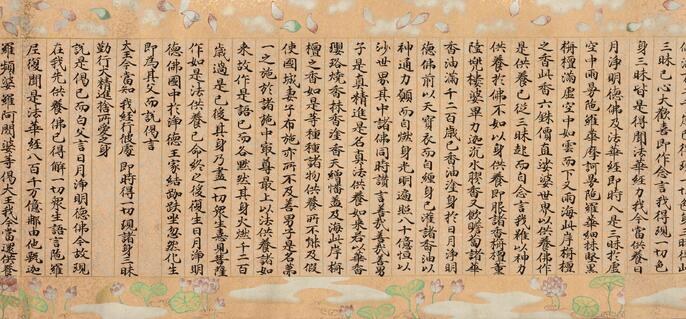 三昧已心大歡喜即作念言我得現一切色
身三昧皆是得聞法華經力我今當供養日
月淨明德佛及法華經即時入是三昧於虛
空中雨曼陀羅華摩訶曼陀羅華細抹堅黑
栴檀滿虛空中如雲而下又雨海此岸栴檀
之香此香六銖價直娑婆世界以供養佛作
是供養已從三昧起而自念言我雖以神力
供養於佛不如以身供養即服諸香栴檀薰
陸兜樓婆畢力迦沈水膠香又飲瞻蔔諸華
香油滿千二百歲已香油塗身於日月淨明
德佛前以天寶衣而自纏身已灌諸香油以
神通力願而自燃身光明遍照八十億恒河
沙世界其中諸佛同時讚言善哉善哉善男
子是真精進是名真法供養如來若以華香
瓔珞燒香抹香塗香天繒幡蓋及海此岸栴
檀之香如是等種種諸物供養所不能及假
使國城妻子布施亦所不及善男子是名第
一之施於諸施中最尊最上以法供養諸如
來故作是語已而各默然其身火燃千二百
歲過是已後其身乃盡一切眾生憙見菩薩
作如是法供養已命終之後復生日月淨明
德佛國中於淨德王家結跏趺坐忽然化生
即為其父而說偈言
大王今當知 我經行彼處 即時得一切 現諸身三昧
勤行大精進 捨所愛之身
說是偈已而白父言日月淨明德佛今故現
在我先供養佛已得解一切眾生語言陀羅
尼復聞是法華經八百千萬億那由他甄迦
羅頻婆羅阿閦婆等偈大王我今當還供養